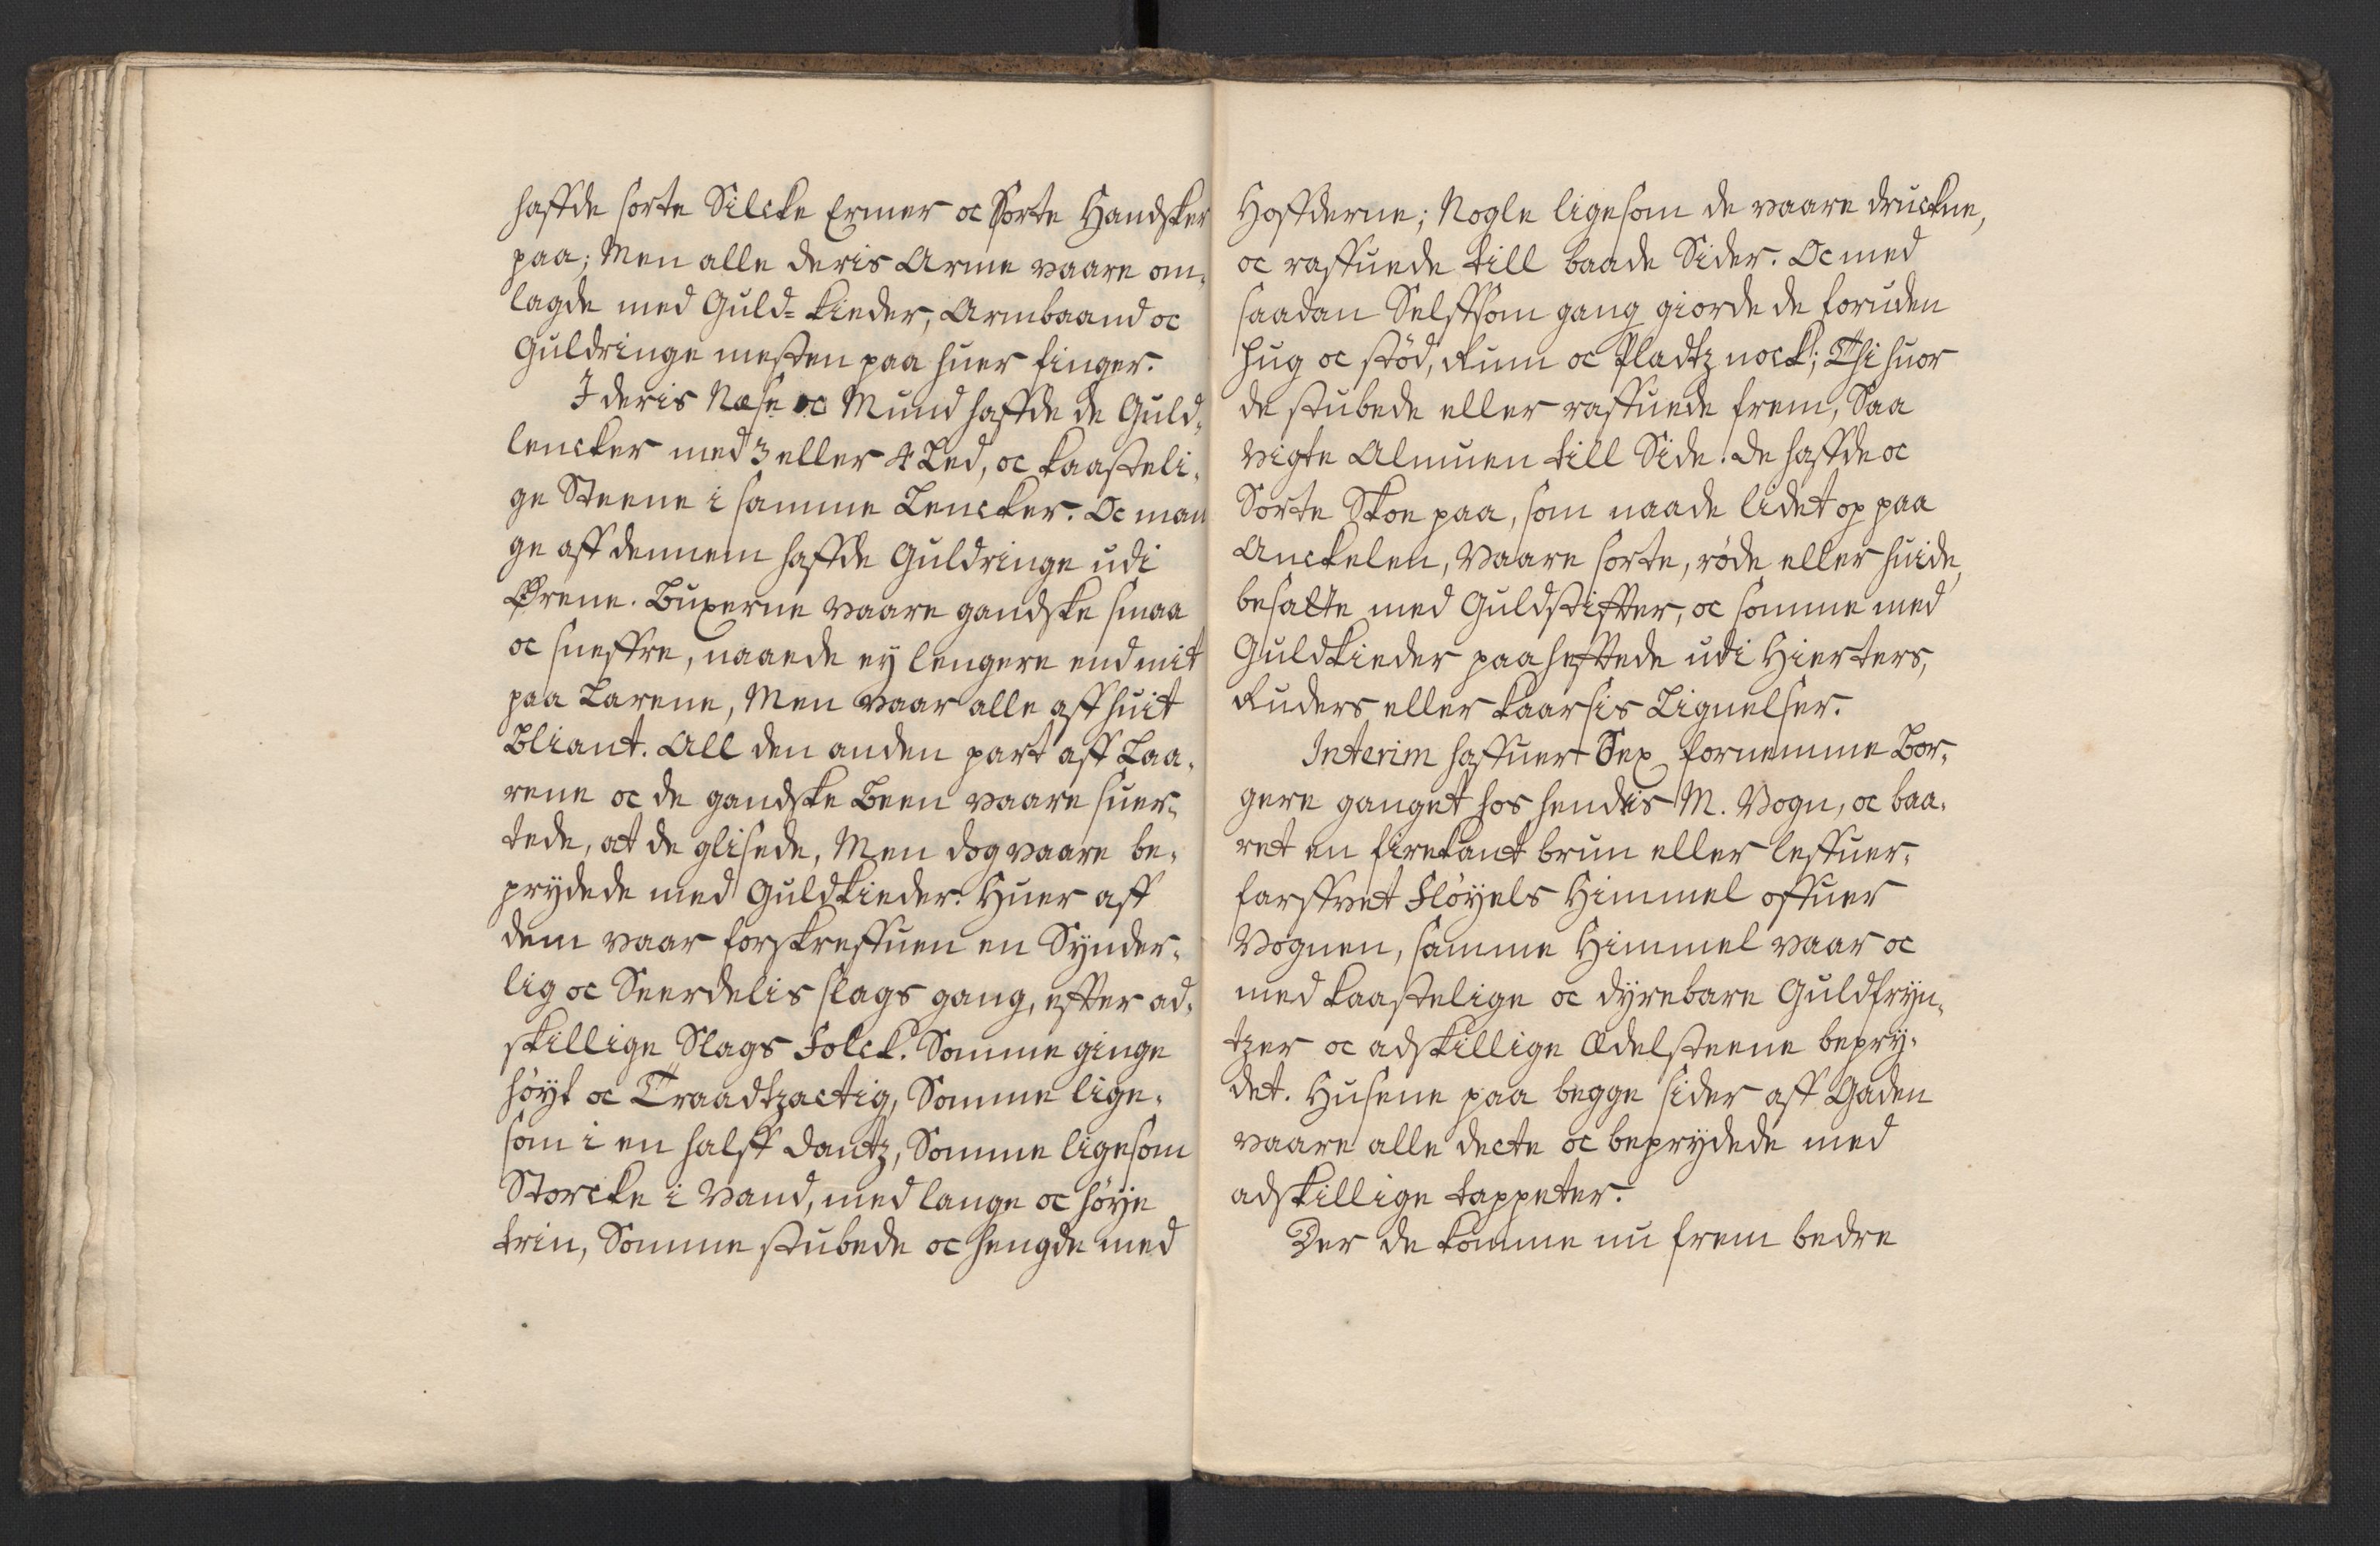 haffde sorte Silcke Ermer oc Sorte Handsker
paa; Men alle deris Arme vaare om-
lagde med Guld-kieder, Armbaand oc
Guldringe mesten paa huer finger.
I deris Næse oc Mund haffde de Guld-
lencker med 3 eller 4 Led, oc kaasteli-
ge Steene i samme Lencker. Oc man
ge aff dennem haffde Guldringe udi
Ørene. Buxerne vaare gandske smaa
oc sneffre, naaede ey lengere end mit
paa Larene, Men vaar alle aff huit
Bliant. All den anden part aff Laa-
rene oc de gandske Been vaare suer-
tede, at de glisede, Men dog vaare be-
prydede med Guldkieder. Huer aff
dem vaar forskreffuen en Synder-
lig oc Seerdelis slags gang, efter ad-
skillige Slags Folck. Somme ginge
höyt oc Traadtzactig, Somme lige-
som i en halff Dantz, Somme ligesom
Storcke i Vand, med lange oc höye
trin, Somme stubede oc hengde med
Hoffderne; Nogle ligesom de vaare druckne,
oc raffuede till baade Sider. Oc med
saadan Selffsom gang giorde de foruden
hug oc stöd, Rum oc Pladtz nock; Thi huor
de stubede eller raffuede frem, Saa
vigte Almuen till Side. De haffde oc
Sorte Skoe paa, som naade lidet op paa
Anckelen, Vaare sorte, röde eller huide,
besatte med Guldstifter, oc somme med
Guldkieder paaheftede udi Hierters,
Ruders eller kaarsis Lignelser.
Interim haffuer Sex fornemme Bor-
gere ganget hos hendis M. Vogn, oc baa-
ret en firekant brun eller leffuer-
farffvet Flöyels Himmel offuer
Vognen, samme Himmel vaar oc
med kaastelige oc dyrebare Guldfryn-
tzer oc adskillige Ædelsteene bepry-
det. Husene paa begge sider aff Gaden
vaare alle decte oc beprydede med
adskillige tappeter.
Der de komme nu frem bedre